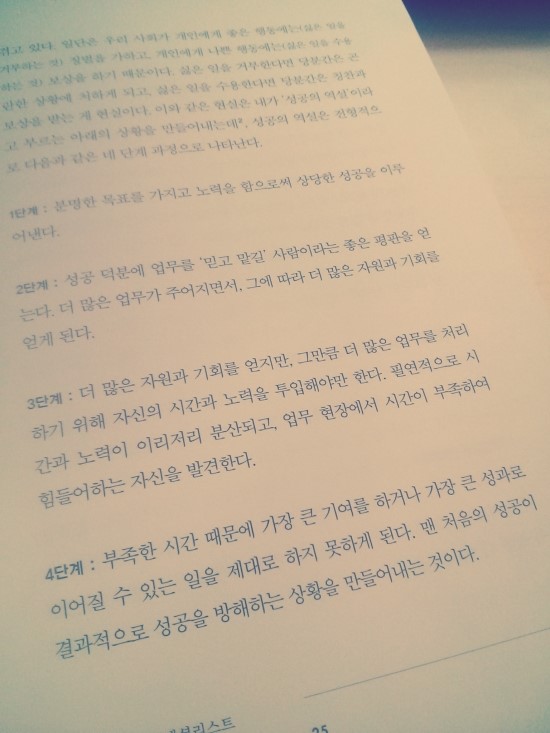 겪고 있다. 일단은 우리 사회가 개인에게 좋은 행동에는(싫은 일을
거부하는 것) 징벌을 가하고, 개인에게 나쁜 행동에는(싫은 일을 수용
하는 것) 보상을 하기 때문이다. 싫은 일을 거부한다면 당분간은 곤
란한 상황에 처하게 되고, 싫은 일을 수용한다면 당분간은 칭찬과
보상을 받는 게 현실이다. 이와 같은 현실은 내가 '성공의 역설'이라
고 부르는 아래의 상황을 만들어내는데, 성공의 역설은 전형적으
로 다음과 같은 네 단계 과정으로 나타난다.
1단계 : 분명한 목표를 가지고 노력을 함으로써 상당한 성공을 이루
어낸다.
2단계 : 성공 덕분에 업무를 '믿고 맡길' 사람이라는 좋은 평판을 얻
는다. 더 많은 업무가 주어지면서, 그에 따라 더 많은 자원과 기회를
얻게 된다.
3단계 : 더 많은 자원과 기회를 얻지만, 그만큼 더 많은 업무를 처리
하기 위해 자신의 시간과 노력을 투입해야만 한다. 필연적으로 시
간과 노력이 이리저리 분산되고, 업무 현장에서 시간이 부족하여
힘들어하는 자신을 발견한다.
4단계 : 부족한 시간 때문에 가장 큰 기여를 하거나 가장 큰 성과로
이어질 수 있는 일을 제대로 하지 못하게 된다. 맨 처음의 성공이
결과적으로 성공을 방해하는 상황을 만들어내는 것이다.
25